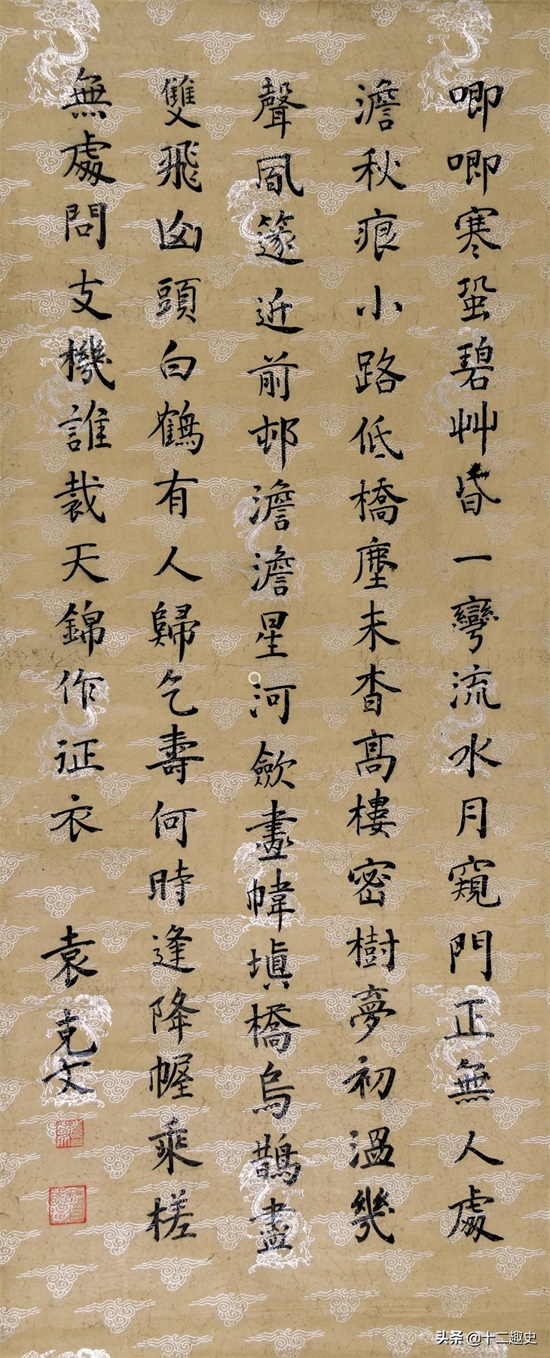 唧唧寒蛩碧艸昏一彎流水月窺門正無人處
澹秋痕小路低橋塵未杳高樓密樹夢初溫幾
聲風篴近前邨澹澹星河斂畫幃填橋烏鵲盡
雙飛頭白鶴有人歸乞壽何時逢降幄乘槎
無處問支機誰裁天錦作征衣
袁克文
头条 @十二趣史